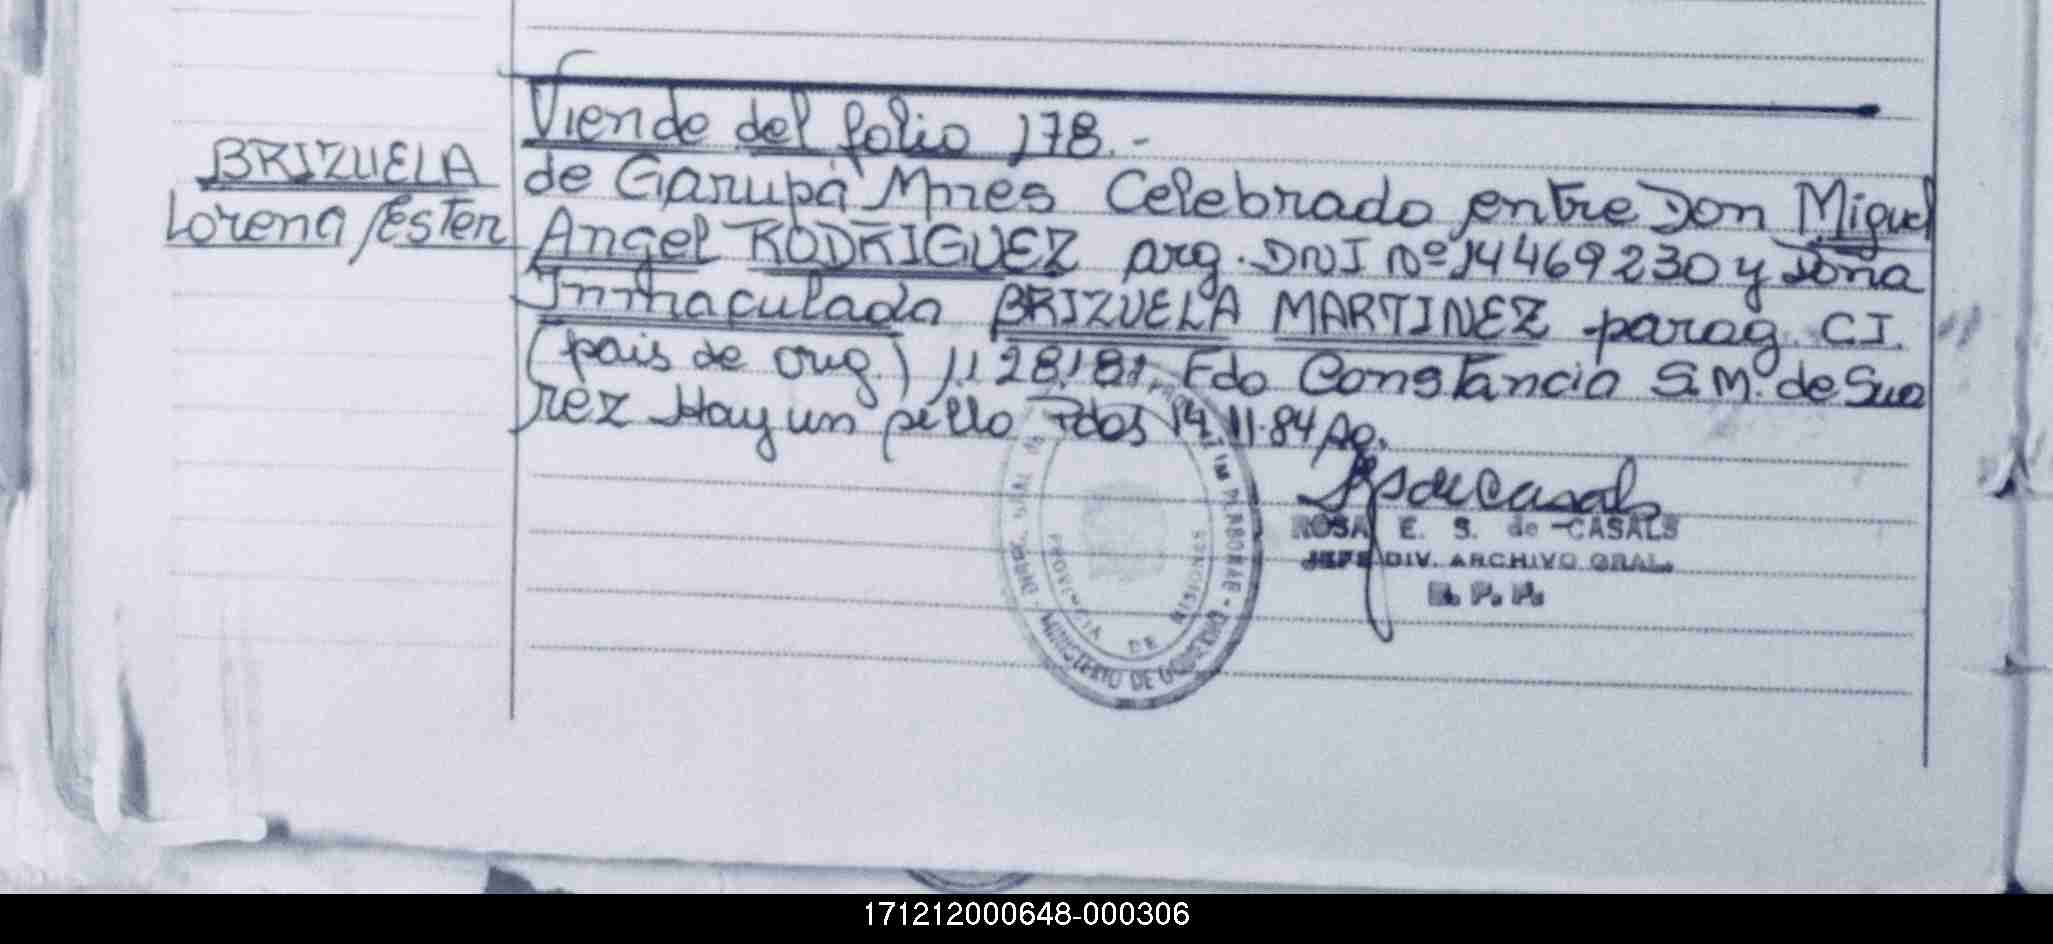 Viende del folio 178.-
BRIZUELA
Lorena Ester
de Garupá Mnes Celebrado entre Don Miguel
Angel RODRIGUEZ arg. DNI Nº 14469230 y Doña
Inmaculada BRIZUELA MARTINEZ parag. C.I.
(pais de orig.) Fdo Constancia S.M. de Sua
rez Hay un sello Pdas 14.11.84
ROSA E. S. de CASALS
JEFE DIV. ARCHIVO GRAL.
R. P. P.
PROVINCIA DE MISIONES
MINISTERIO DE GOBIERNO
171212000648-000306